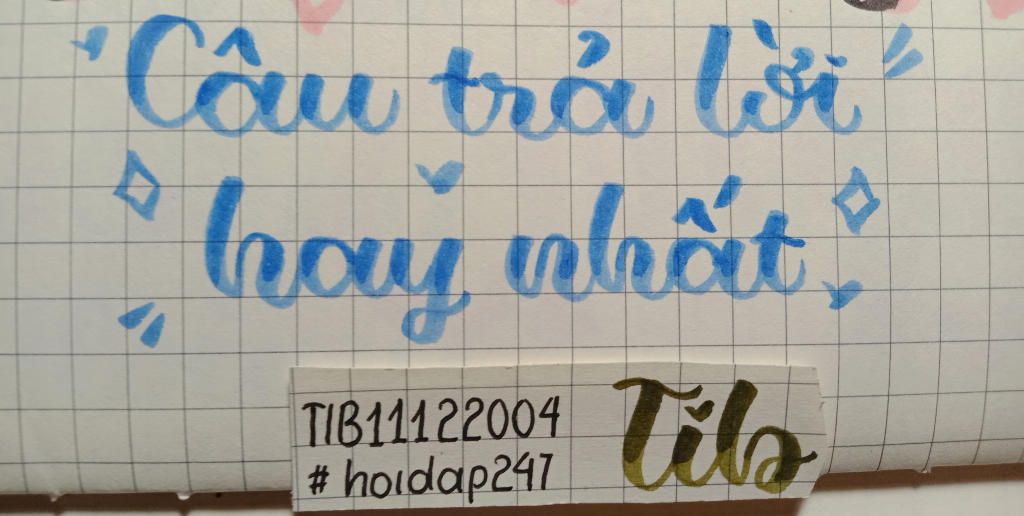 Câu trả lời
hay nhất
TIB11122004
# hoidap247
Tib